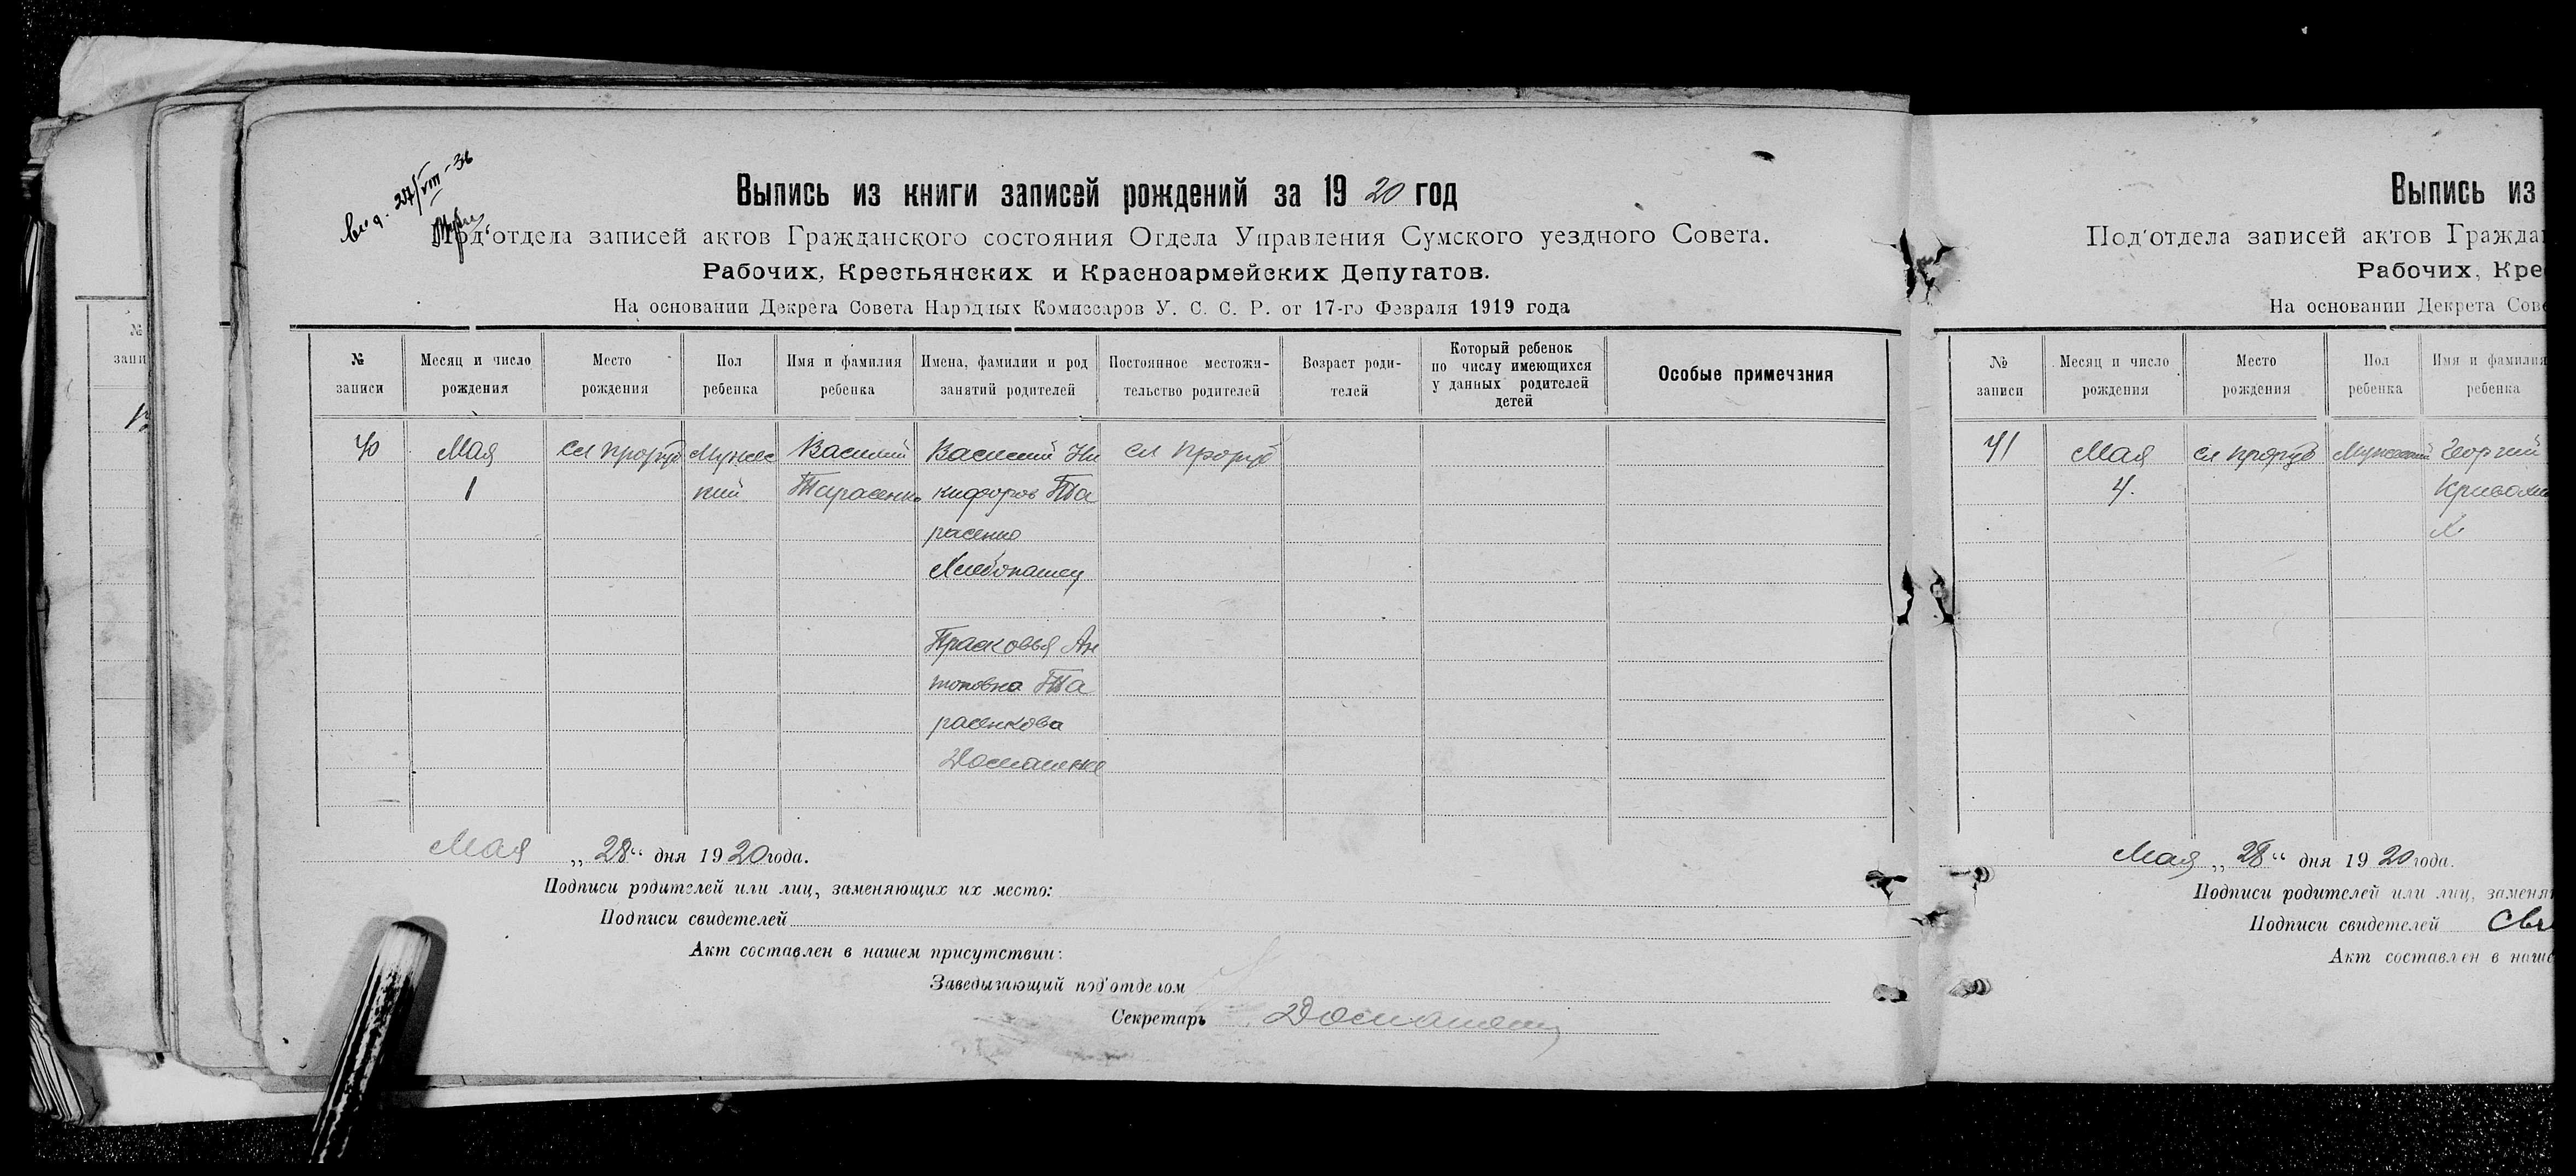 Выд. 27/VIII-36
Выпись из книги записей рождений за 1920 год
Под'отдела записей актов Гражданского состояния Отдела Управления Сумского уездного Совета.
Рабочих, Крестьянских и Красноармейских Депутатов.
На основании Декрета Совета Народных Комиссаров У. С. С. Р. от 17-го Февраля 1919 года
№ записи
Месяц и число рождения
Место рождения
Пол ребенка
Имя и фамилия ребенка
Имена, фамилии и род занятий родителей
Постоянное местожительство родителей
Возраст родителей
Который ребенок по числу имеющихся у данных родителей детей
Особые примечания
40
Мая
1
сл Проруб
Мужес
кий
Василий
Тарасенко
Василий Ни
кифоров Та
расенко
Хлебопашец
Прасковья Ан
тоновна Та
расенкова
сл Проруб
Мая „28“ дня 1920 года.
Подписи родителей или лиц, заменяющих их место:
Подписи свидетелей
Акт составлен в нашем присутствии:
Заведывающий под'отделом
Секретарь
Выпись из
Под'отдела записей актов Гражда
Рабочих, Кре
На основании Декрета Сове
№ записи
Месяц и число рождения
Место рождения
Пол ребенка
Имя и фамилия ребенка
41
Мая
4.
сл Проруб
Мужеский
Георгий
Мая „28“ дня 1920 года.
Подписи родителей или лиц, заменя
Подписи свидетелей
Акт составлен в наше
№
запи